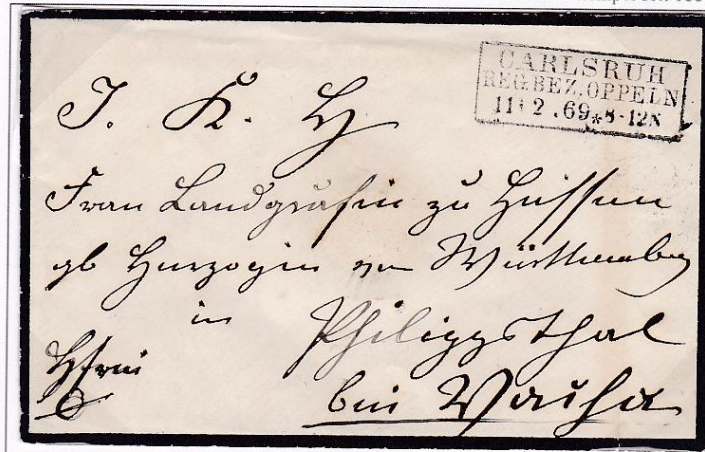 CARLSRUH
REG. BEZ. OPPELN
11 2 .69 * 8-12N
I. K. H
Frau Landgräfin zu Hessen
gb Herzogin von Württemberg
in Philippsthal
frei
bei Vacha